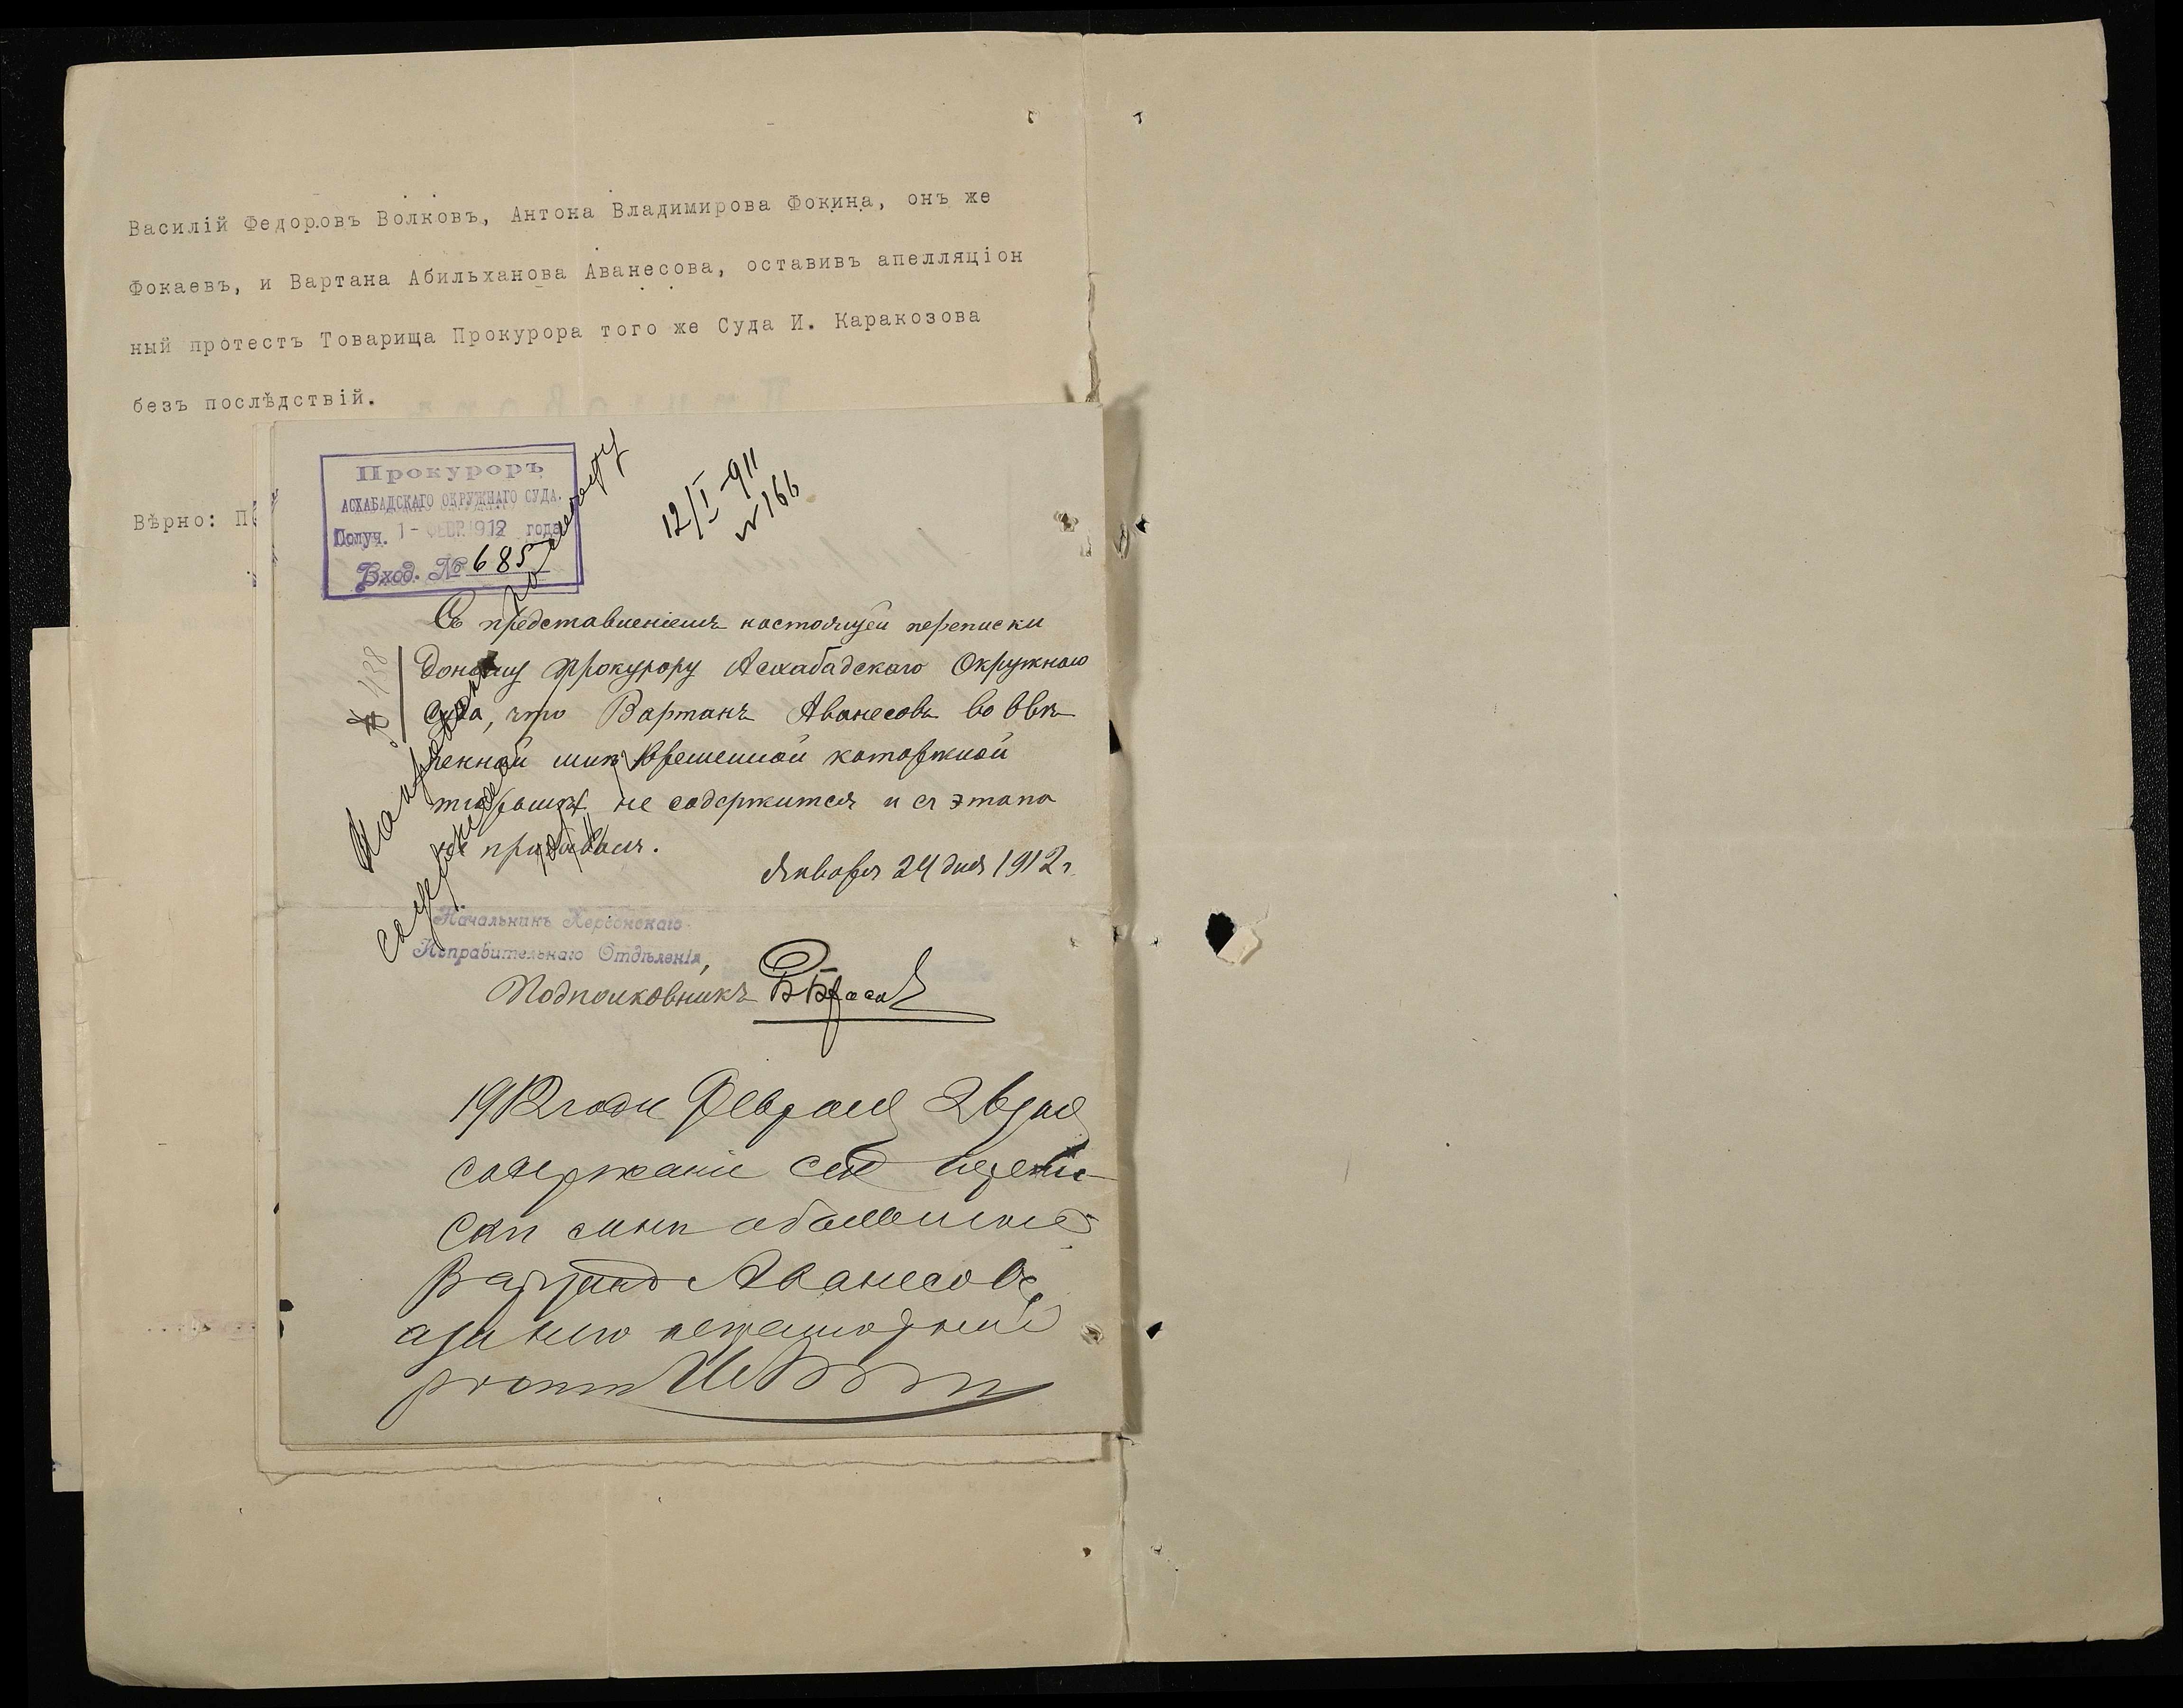 Василій Федоровъ Волковъ, Антона Владимирова Фокина, онъ же
Фокаевъ, и Вартана Абильханова Аванесова, оставивъ апелляціон
ный протестъ Товарища Прокурора того же Суда И. Каракозова
безъ послѣдствій.
Вѣрно: П
Прокуроръ
АСХАБАДСКАГО ОКРУЖНАГО СУДА.
Получ. 1 - ФЕВР 1912 года
Вход. № 685
12/I-911
№ 166
Съ представленіемъ настоящей переписки
доношу Прокурору Асхабадскаго Окружнаго
Суда, что Вартанъ Аванесовъ во ввѣ
ренной мнѣ временной каторжной
тюрьмѣ не содержится и съ этапа
не прибывалъ.
Января 24 дня 1912 г.
№ 438
Начальникъ Херсонскаго
Исправительнаго Отдѣленія,
Подполковникъ
1912 года Февраля дня
содержаніе сей перепи
ски мнѣ объявлено
Вартанъ Аванесовъ